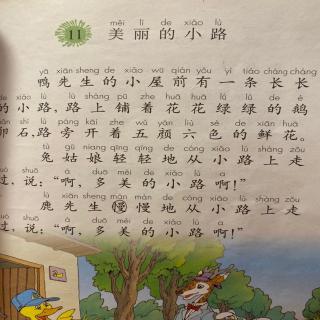 měi lì de xiǎo lù
11 美丽的小路
yā xiān sheng de xiǎo wū qián yǒu yì tiáo cháng cháng
鸭先生的小屋前有一条长长
de xiǎo lù lù shàng pū zhe huā huā lǜ lǜ de é
的小路，路上铺着花花绿绿的鹅
páng kāi zhe wǔ yán liù sè de xiān huā
卵石，路旁开着五颜六色的鲜花。
tù gū niang qīng qīng de cóng xiǎo lù shàng zǒu
兔姑娘轻轻地从小路上走
shuō ā duō měi de xiǎo lù a
过，说：“啊，多美的小路啊！”
lù xiān sheng màn màn de cóng xiǎo lù shàng zǒu
鹿先生慢慢地从小路上走
shuō ā duō měi de xiǎo lù a
过，说：“啊，多美的小路啊！”